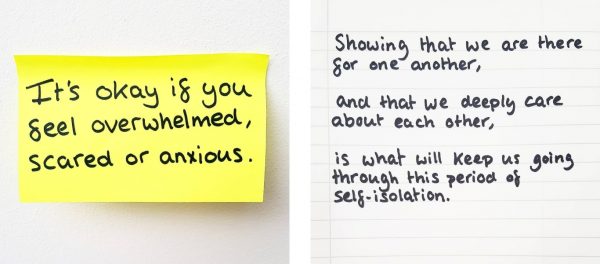 It's okay if you
feel overwhelmed,
scared or anxious.
Showing that we are there
for one another,
and that we deeply care
about each other,
is what will keep us going
through this period of
self-isolation.